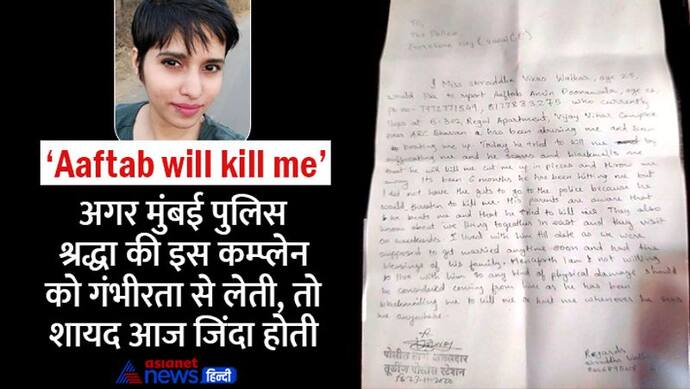 'Aaftab will kill me'
अगर मुंबई पुलिस
श्रद्धा की इस कम्प्लेन
को गंभीरता से लेती, तो
शायद आज जिंदा होती
asianet
news हिन्दी
To,
The Police
I Miss Shraddha Vikas Walkar, age 25,
would like to report Aaftab Amin Poonawala, age
who currently
B-302, Regal Apartment, Vijay Vihar Complex
has been abusing me and
beating me up. Today he tried to kill me by
suffocating me and he scares and blackmails me
that he will kill me cut me up in pieces and throw me
away. Its been 6 months he has been hitting me but
I did not have the guts to go to the police because he
would threaten to kill me. His parents are aware that
he beats me and that he tried to kill me. They also
know about we living together and they visit
on weekends. I lived with him till date as we were
supposed to get married anytime soon and had the
blessings of his family. Henceforth I am not willing
to live with him so any kind of physical damage should
be considered coming from him as he has been
blackmailing me to kill me or hurt me whenever he sees
me anywhere.
Regards
पोलीस स्टेशन